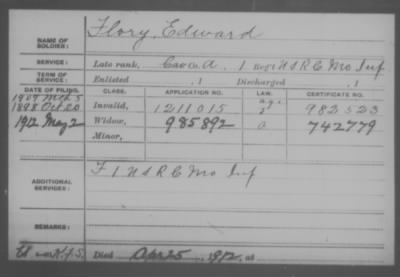 NAME OF SOLDIER: Flory, Edward
SERVICE: Late rank, Co. A, 1 Reg't U S R C Mo Inf
TERM OF SERVICE: Enlisted , 1 Discharged , 1
DATE OF FILING. CLASS. APPLICATION NO. LAW. CERTIFICATE NO.
1907 Mch 5 age
1898 Oct 20 Invalid, 1211015 982523
1912 May 2 Widow, 985892 742779
Minor,
ADDITIONAL SERVICES: F 1 U S R C Mo Inf
REMARKS:
Died Apr 25, 1912, at